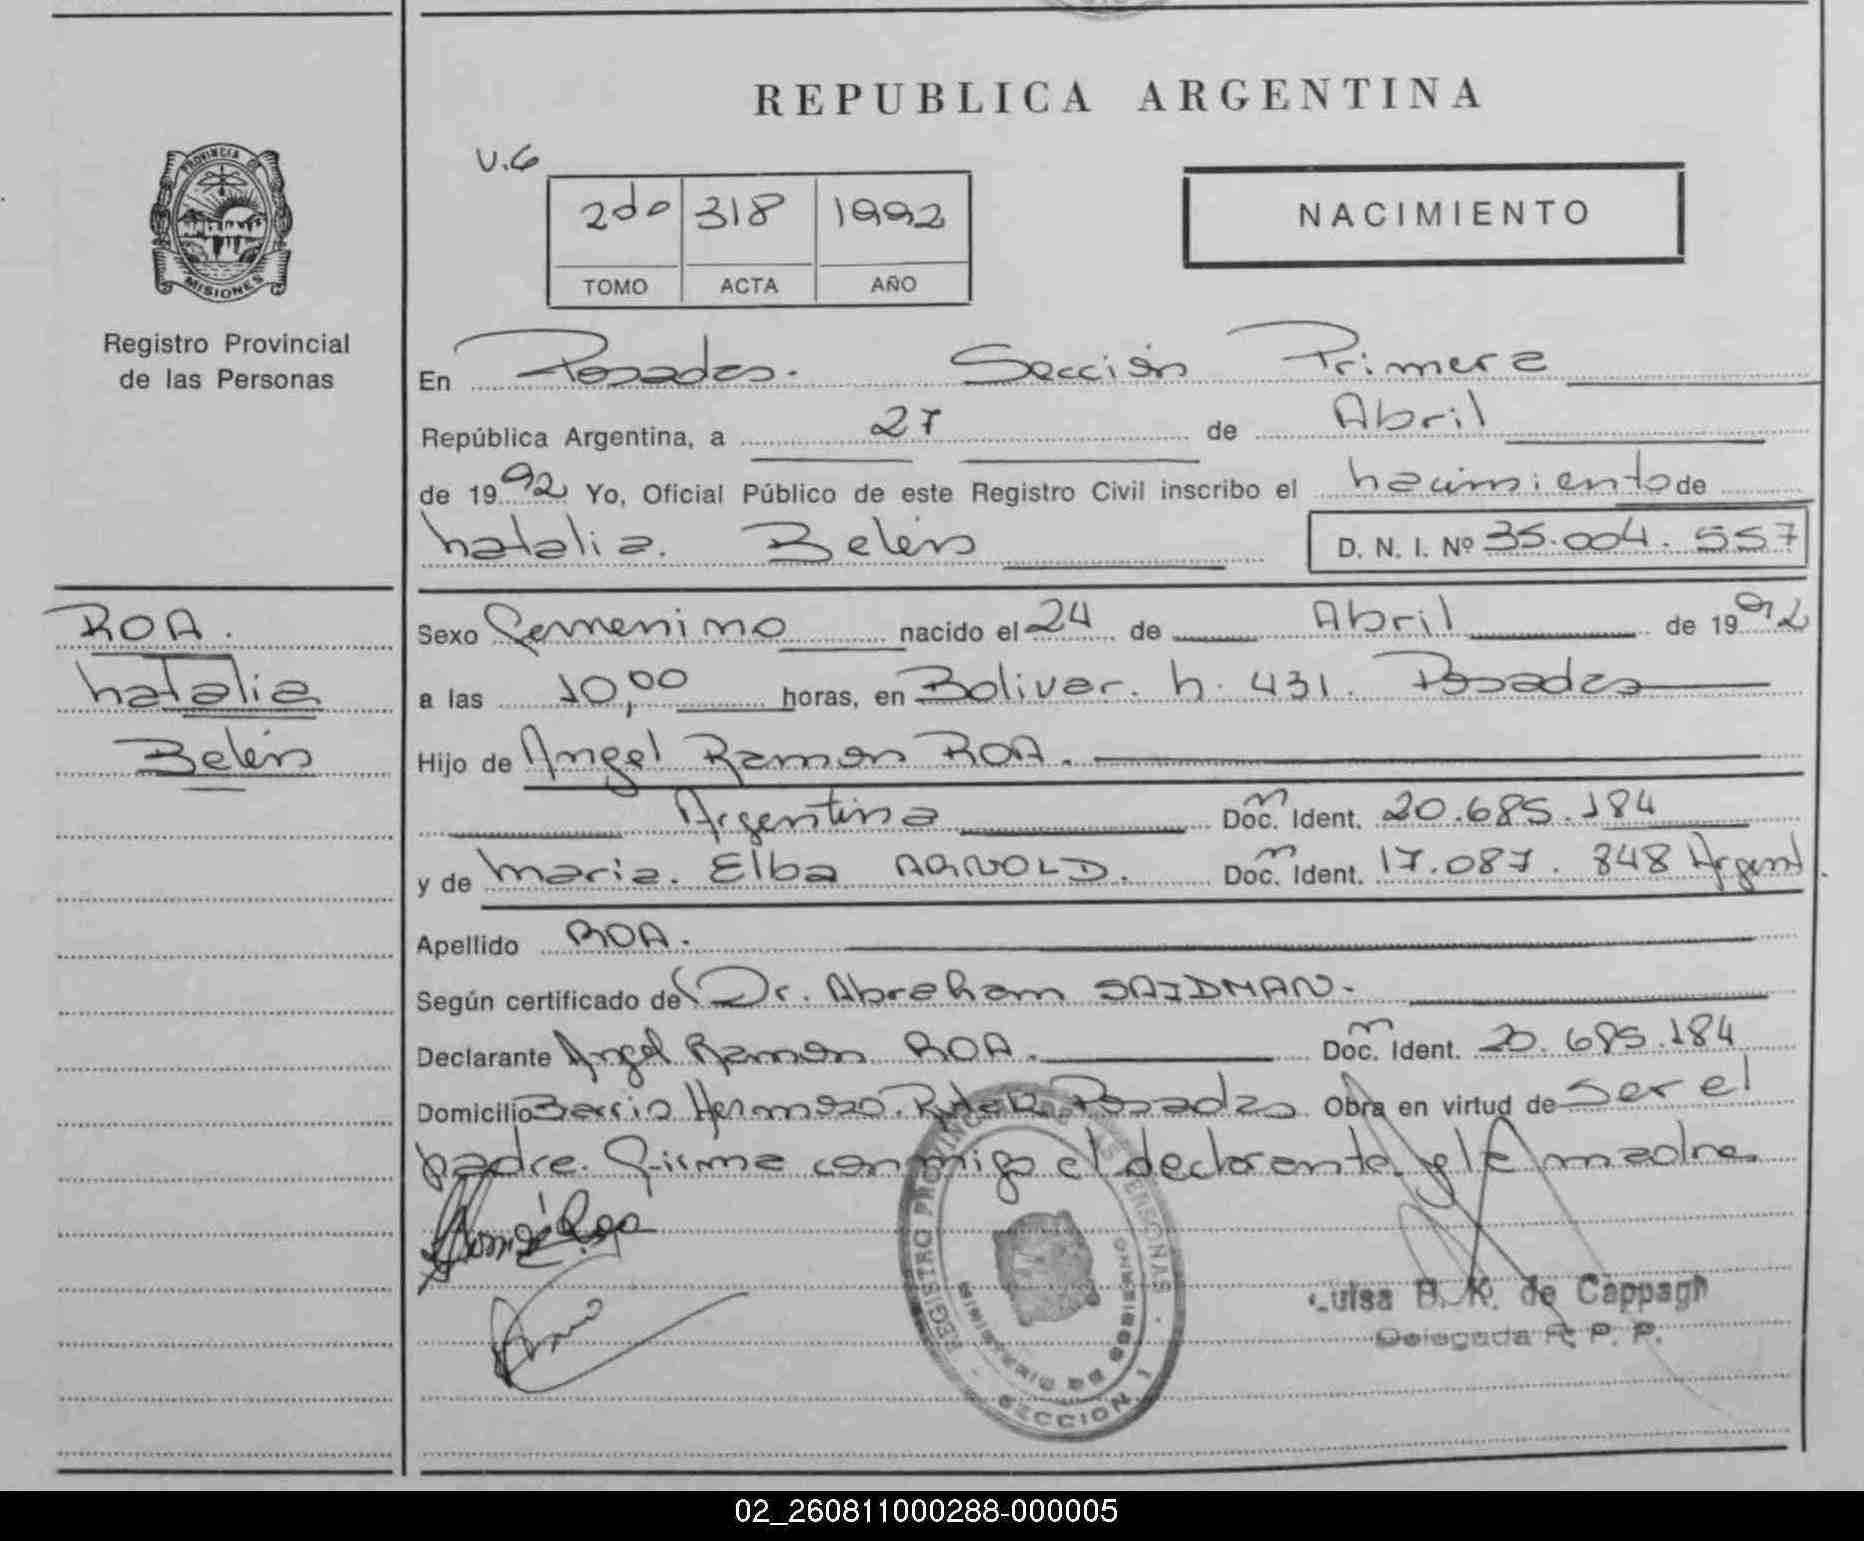 REPUBLICA ARGENTINA
PROVINCIA DE
MISIONES
Registro Provincial
de las Personas
V.6
2do 318 1992
TOMO ACTA AÑO
NACIMIENTO
En Posadas. Sección Primera
República Argentina, a 27 de Abril
de 1992 Yo, Oficial Público de este Registro Civil inscribo el nacimiento de
Natalia. Belén D. N. I. Nº 35.004.557
ROA.
Natalia
Belén
Sexo Femenino nacido el 24 de Abril de 1992
a las 10,00 horas, en Bolivar. N. 431. Posadas
Hijo de Angel Ramon ROA.
Argentina Doc. Ident. 20.685.184
y de Maria. Elba ARNOLD. Doc. Ident. 17.087.848 Argent.
Apellido ROA.
Según certificado de Dr. Abraham SAIDMAN.
Declarante Angel Ramon ROA. Doc. Ident. 20.685.184
Domicilio Barrio Hermoso. Posadas Obra en virtud de ser el
padre. Firma conmigo el declarante y la madre.
REGISTRO PROVINCIAL DE LAS PERSONAS
MINISTERIO DE GOBIERNO
SECCION 1
Luisa B. K. de Cappagh
Delegada R. P. P.
02_260811000288-000005